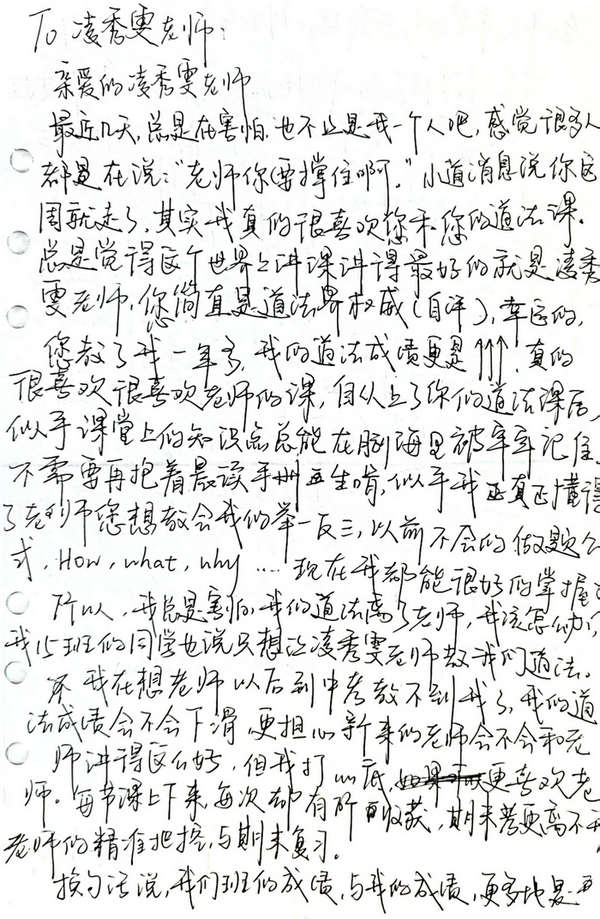 To 凌秀雯老师：
亲爱的凌秀雯老师
最近几天，总是在害怕，也不止是我一个人吧，感觉很多人
都是在说：“老师你要撑住啊。”小道消息说你这
周就走了，其实我真的很喜欢您和您的道法课。
总是觉得这个世界上讲课讲得最好的就是凌秀
雯老师，您简直是道法界权威（自评），幸运的，
您教了我一年多，我的道法成绩更是↑↑↑，真的
很喜欢很喜欢老师的课，自从上了你的道法课后，
似乎课堂上的知识点总能在脑海里被牢牢记住，
不需要再抱着晨读手册再生啃，似乎我正真正懂得
了老师您想教会我们举一反三，以前不会的做题公
式，How，what，why .... 现在我都能很好的掌握
所以，我总是害怕，我的道法离了老师，我该怎么办，
我15班的同学也说只想让凌秀雯老师教我们道法。
我在想老师以后到中考教不到我了，我的道
法成绩会不会下滑，更担心新来的老师会不会和老
师讲得这么好，但我打心底，更喜欢老
师。每节课上下来，每次都有所收获，期末考更离不开
老师的精准把控，与期末复习。
换句话说，我们班的成绩，与我的成绩，更多地是